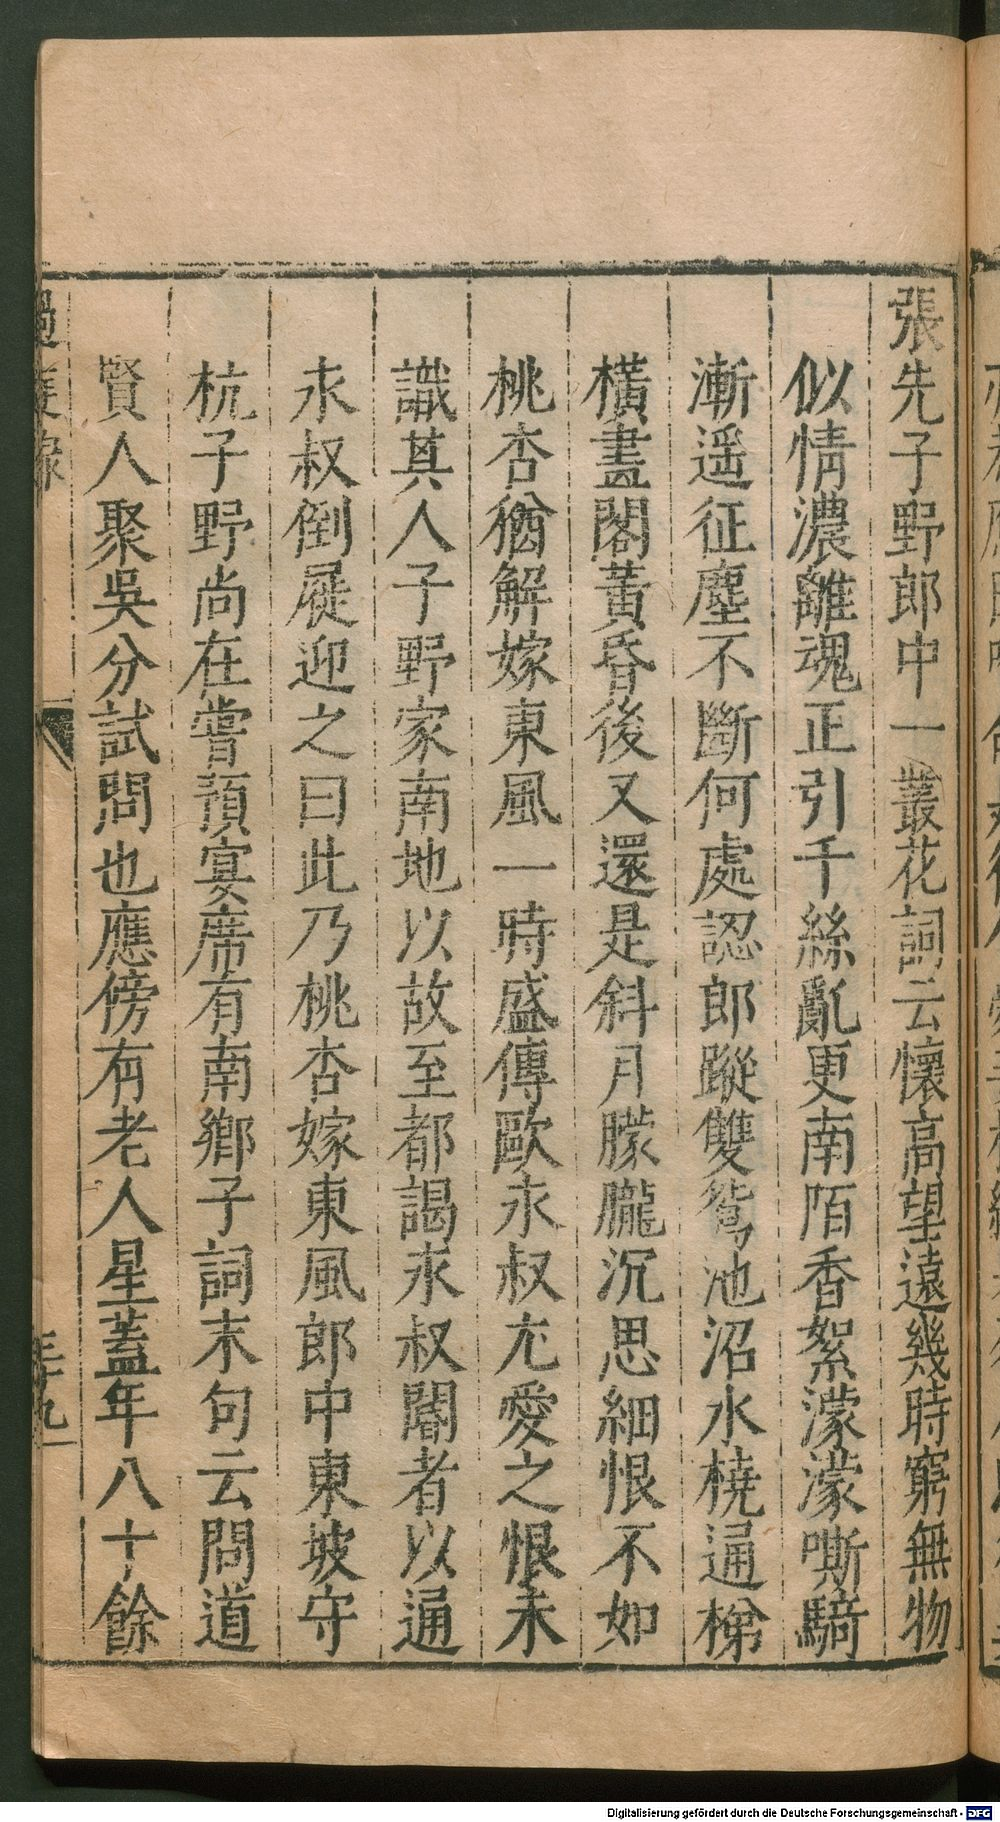 張先子野郎中一叢花詞云懷高望遠幾時窮無物
似情濃離魂正引千絲亂更南陌香絮濛濛嘶騎
漸遥征塵不斷何處認郎蹤雙鴛池沼水橈通梯
橫畫閣黃昏後又還是斜月朦朧沉思細恨不如
桃杏猶解嫁東風一時盛傳歐永叔尤愛之恨未
識其人子野家南地以故至都謁永叔閽者以通
永叔倒屣迎之曰此乃桃杏嫁東風郎中東坡守
杭子野尚在嘗預宴席有南鄉子詞末句云問道
賢人聚吳分試問也應傍有老人星蓋年八十餘
過庭錄
三九
Digitalisierung gefördert durch die Deutsche Forschungsgemeinschaft - DFG